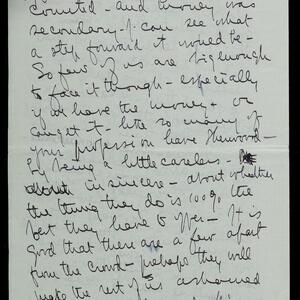 counted - and money was
secondary - I can see what
a step forward it would be -
So few of us are big enough
to face it though - especially
if we have the money + or
can get it - like so many of
your profession have Sherwood -
by being a little careless -
in sincere - about whether
the thing they do is 100% the
best they have to offer - It is
good that there are a few apart
from the crowd - perhaps they will
make the rest of us ashamed